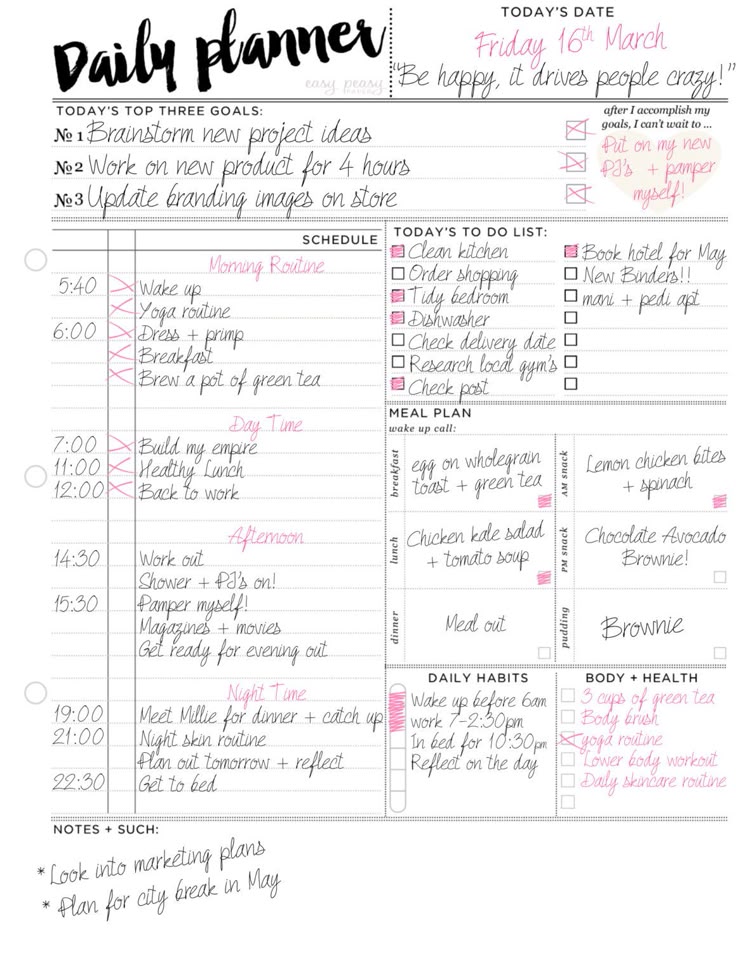 Daily planner
easy peasy
TODAY'S DATE
Friday 16th March
"Be happy, it drives people crazy!"
TODAY'S TOP THREE GOALS:
№ 1 Brainstorm new project ideas
№ 2 Work on new product for 4 hours
№ 3 Update branding images on store
after I accomplish my
goals, I can't wait to ...
Put on my new
PJ's + pamper
myself!
SCHEDULE
Morning Routine
5:40 Wake up
Yoga routine
6:00 Dress + primp
Breakfast
Brew a pot of green tea
Day Time
7:00 Build my empire
11:00 Healthy Lunch
12:00 Back to work
Afternoon
14:30 Work out
Shower + PJ's on!
15:30 Pamper myself!
Magazines + movies
Get ready for evening out
Night Time
19:00 Meet Millie for dinner + catch up
21:00 Night skin routine
Plan out tomorrow + reflect
22:30 Get to bed
TODAY'S TO DO LIST:
Clean kitchen
Order shopping
Tidy bedroom
Dishwasher
Check delivery date
Research local gym's
Check post
Book hotel for May
New Binders!!
mani + pedi apt
MEAL PLAN
wake up call:
breakfast
egg on wholegrain
toast + green tea
AM snack
Lemon chicken bites
+ spinach
lunch
Chicken kale salad
+ tomato soup
PM snack
Chocolate Avocado
Brownie!
dinner
Meal out
pudding
Brownie
DAILY HABITS
Wake up before 6am
work 7-2:30pm
In bed for 10:30pm
Reflect on the day
BODY + HEALTH
3 cups of green tea
Body brush
yoga routine
Lower body workout
Daily skincare routine
NOTES + SUCH:
* Look into marketing plans
* Plan for city break in May